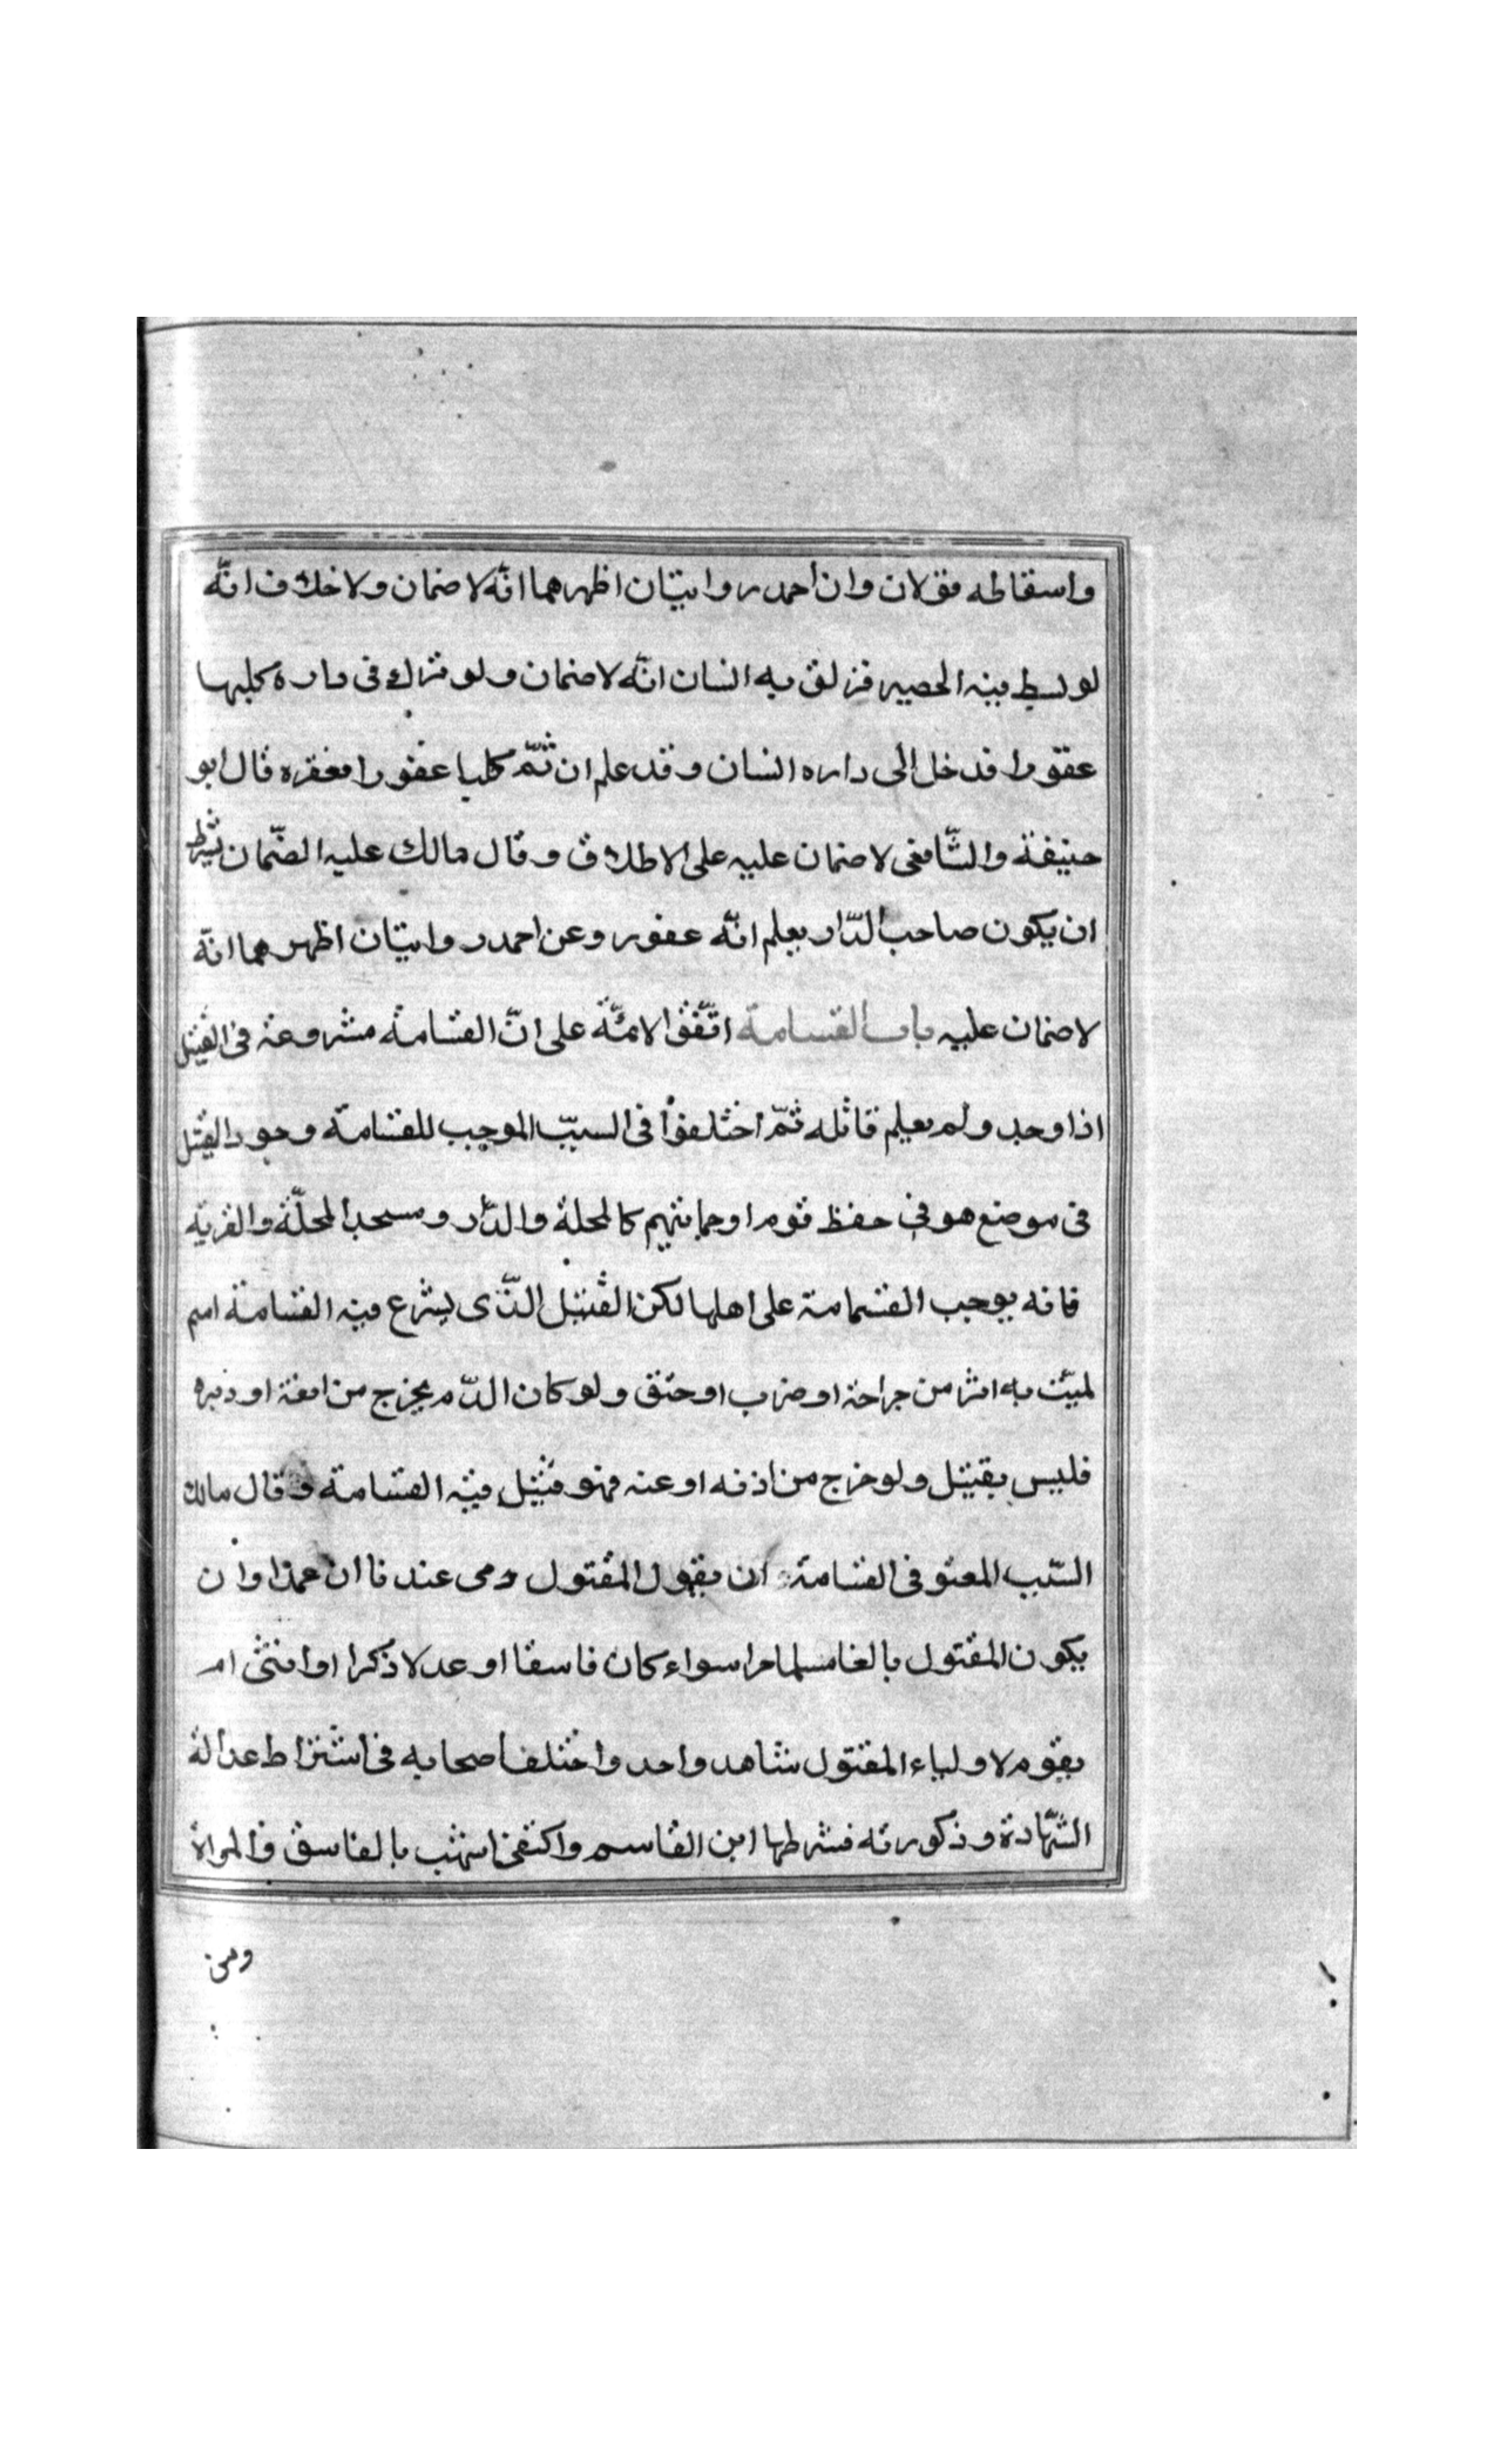 واسقاطه فولان وان احمد روايتان اظهرهما انّه لا ضمان ولا خلاف انّه
لو بسط فيه الحصير فزلق به انسان انّه لا ضمان ولو ترك في داره كلبها
عقورا فدخل الى داره انسان وقد علم ان ثمّ كلبا عقورا فعقره قال ابو
حنيفة والشّافعى لا ضمان عليه على الاطلاق وقال مالك عليه الضّمان بشرط
ان يكون صاحب الدّار يعلم انّه عقور وعن احمد روايتان اظهرهما انّه
لا ضمان عليه باب القسامة اتّفق الائمّة على انّ القسامة مشروعة فى القتيل
اذا وجد ولم يعلم قاتله ثمّ اختلفوا فى السبّب الموجب للقسامة وجود القتيل
فى موضع هو فى حفظ قوم او حمايتهم كالمحلة والدّار ومسجد المحلّة والقرية
فانه يوجب القسامة على اهلها لكن القتيل الّذى يشرع فيه القسامة اسم
لميّت به اثر من جراحة او ضرب او خنق ولو كان الدّم يخرج من انفه او دبره
فليس بقتيل ولو خرج من اذنه او عنه فهو قتيل فيه القسامة وقال مالك
السّبب المعتو فى القسامة ان يقول المقتول دمى عند فلان عمدا وان
يكون المقتول بالغا مسلما حرا سواء كان فاسقا او عدلا ذكرا او انثى ام
يقوم لاولياء المقتول شاهد واحد واختلف اصحابه فى اشتراط عدالة
الشّهادة وذكورته فشرطها ابن القاسم واكتفى اشهب بالفاسق والمراة
ومن